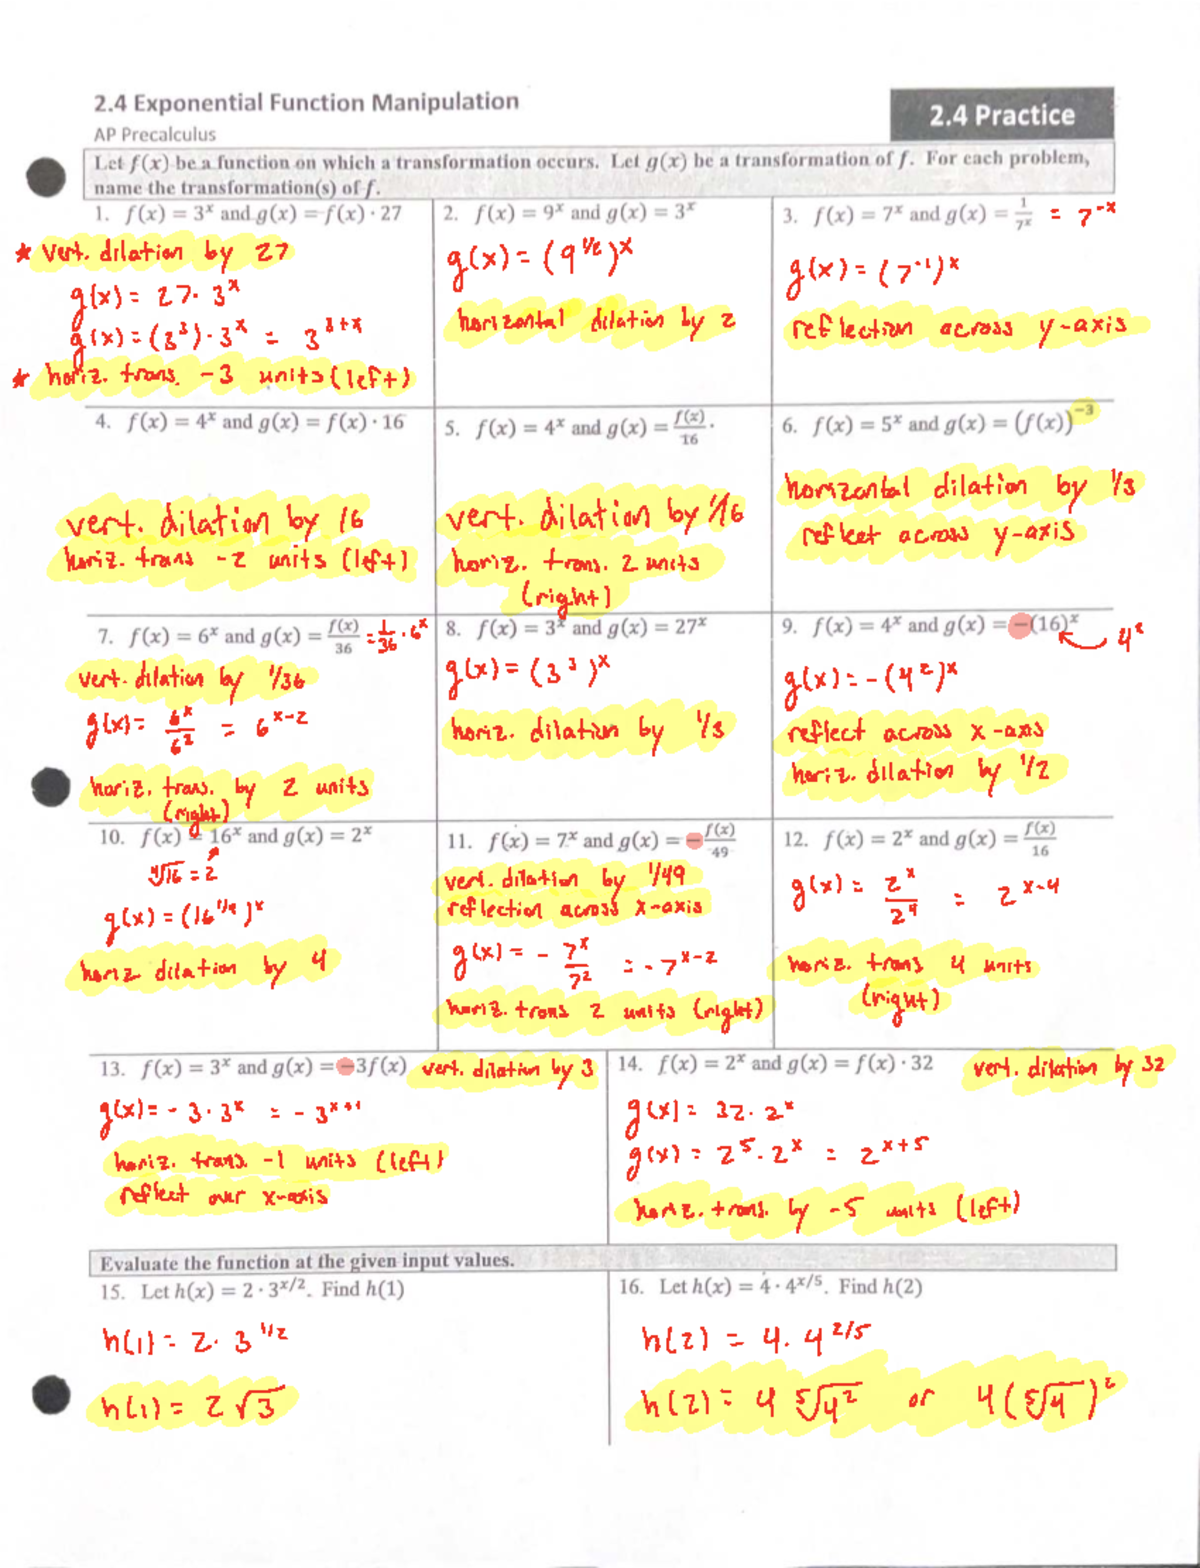 2.4 Exponential Function Manipulation
2.4 Practice
AP Precalculus
Let f(x) be a function on which a transformation occurs. Let g(x) be a transformation of f. For each problem,
name the transformation(s) of f.
1. f(x) = 3ˣ and g(x) = f(x) · 27
* vert. dilation by 27
g(x) = 27 · 3ˣ
g(x) = (3³) · 3ˣ = 3³⁺ˣ
* horiz. trans. -3 units (left)
2. f(x) = 9ˣ and g(x) = 3ˣ
g(x) = (9^1/2)ˣ
horizontal dilation by 2
3. f(x) = 7ˣ and g(x) = 1/7ˣ = 7⁻ˣ
g(x) = (7⁻¹)ˣ
reflection across y-axis
4. f(x) = 4ˣ and g(x) = f(x) · 16
vert. dilation by 16
horiz. trans -2 units (left)
5. f(x) = 4ˣ and g(x) = f(x)/16.
vert. dilation by 1/16
horiz. trans. 2 units
(right)
6. f(x) = 5ˣ and g(x) = (f(x))⁻³
horizontal dilation by 1/3
reflect across y-axis
7. f(x) = 6ˣ and g(x) = f(x)/36 = 1/36 · 6ˣ
vert. dilation by 1/36
g(x) = 6ˣ/6² = 6ˣ⁻²
horiz. trans. by 2 units
(right)
8. f(x) = 3ˣ and g(x) = 27ˣ
g(x) = (3³)ˣ
horiz. dilation by 1/3
9. f(x) = 4ˣ and g(x) = -(16)ˣ 4²
g(x) = -(4²)ˣ
reflect across x-axis
horiz. dilation by 1/2
10. f(x) = 16ˣ and g(x) = 2ˣ
⁴√16 = 2
g(x) = (16^1/4)ˣ
horiz dilation by 4
11. f(x) = 7ˣ and g(x) = -f(x)/49
vert. dilation by 1/49
reflection across x-axis
g(x) = - 7ˣ/7² = -7ˣ⁻²
horiz. trans 2 units (right)
12. f(x) = 2ˣ and g(x) = f(x)/16
g(x) = 2ˣ/2⁴ = 2ˣ⁻⁴
horiz. trans 4 units
(right)
13. f(x) = 3ˣ and g(x) = -3f(x) vert. dilation by 3
g(x) = -3·3ˣ = -3ˣ⁺¹
horiz. trans. -1 units (left)
reflect over x-axis
14. f(x) = 2ˣ and g(x) = f(x) · 32 vert. dilation by 32
g(x) = 32·2ˣ
g(x) = 2⁵·2ˣ = 2ˣ⁺⁵
horiz. trans. by -5 units (left)
Evaluate the function at the given input values.
15. Let h(x) = 2 · 3^x/2. Find h(1)
h(1) = 2·3^1/2
h(1) = 2√3
16. Let h(x) = 4 · 4^x/5. Find h(2)
h(2) = 4·4^2/5
h(2) = 4 ⁵√4² or 4(⁵√4)²